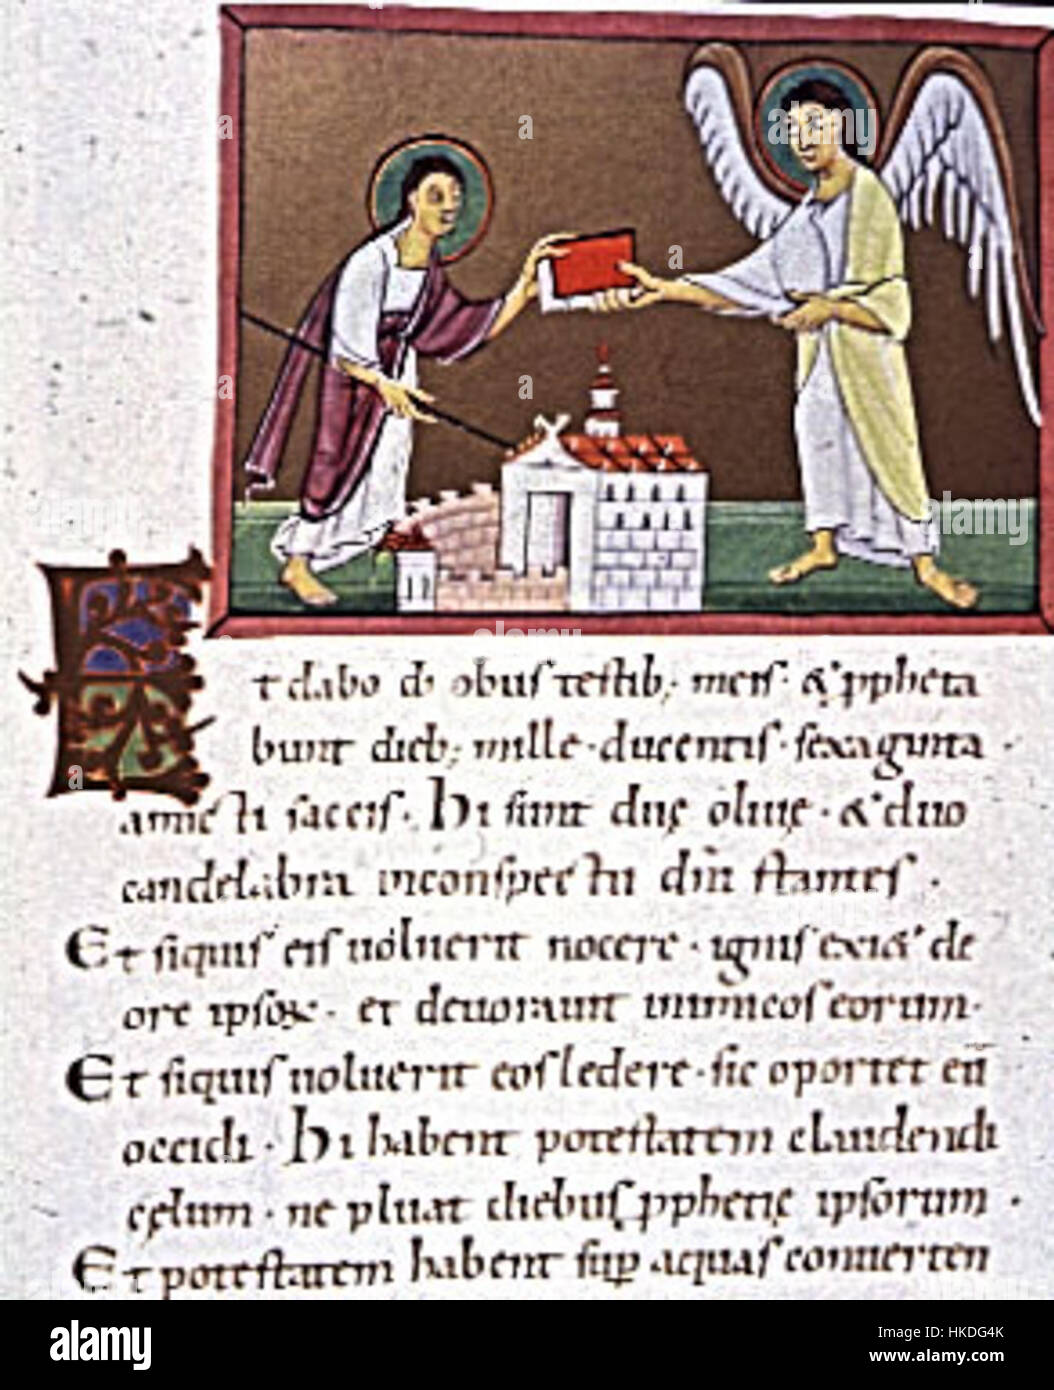 Et dabo duobus testib; meis· & ppheta
bunt dieb; mille·ducentis·sexaginta·
amicti saccis· hi sunt duę oliuę·& duo
candelabra inconspectu dn̄i stantes·
Et siquis eis uoluerit nocere·ignis exi& de
ore ipsoꝝ· et deuorauit inimicos eorum·
Et siquis uoluerit eos ledere·sic oportet eū
occidi· hi habent potestatem claudendi
cęlum·ne pluat diebus pphetię ipsorum·
Et potestatem habent sup aquas conuerten
alamy
Image ID: HKDG4K
www.alamy.com